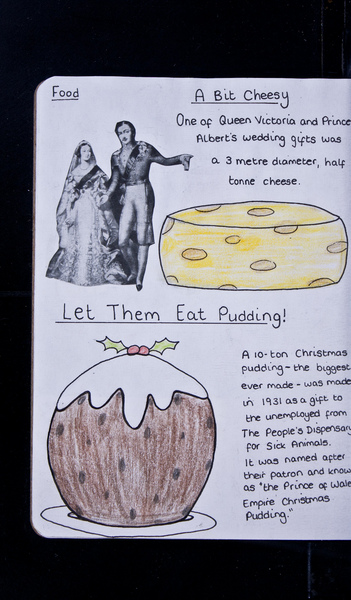 Food
A Bit Cheesy
One of Queen Victoria and Prince
Albert's wedding gifts was
a 3 metre diameter, half
tonne cheese.
Let Them Eat Pudding!
A 10-ton Christmas
pudding - the biggest
ever made - was made
in 1931 as a gift to
the unemployed from
The People's Dispensary
for Sick Animals.
It was named after
their patron and know
as "the Prince of Wale
Empire Christmas
Pudding."